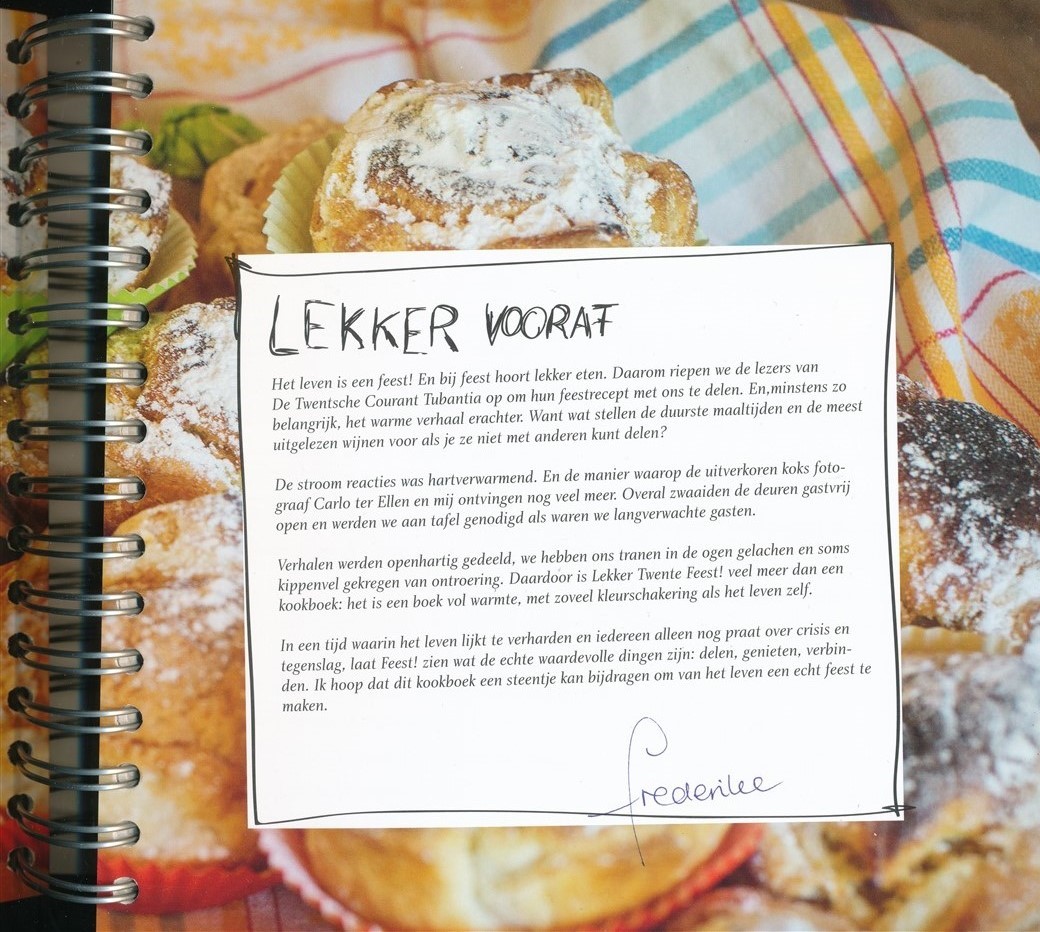 LEKKER VOORAF
Het leven is een feest! En bij feest hoort lekker eten. Daarom riepen we de lezers van
De Twentsche Courant Tubantia op om hun feestrecept met ons te delen. En,minstens zo
belangrijk, het warme verhaal erachter. Want wat stellen de duurste maaltijden en de meest
uitgelezen wijnen voor als je ze niet met anderen kunt delen?
De stroom reacties was hartverwarmend. En de manier waarop de uitverkoren koks foto-
graaf Carlo ter Ellen en mij ontvingen nog veel meer. Overal zwaaiden de deuren gastvrij
open en werden we aan tafel genodigd als waren we langverwachte gasten.
Verhalen werden openhartig gedeeld, we hebben ons tranen in de ogen gelachen en soms
kippenvel gekregen van ontroering. Daardoor is Lekker Twente Feest! veel meer dan een
kookboek: het is een boek vol warmte, met zoveel kleurschakering als het leven zelf.
In een tijd waarin het leven lijkt te verharden en iedereen alleen nog praat over crisis en
tegenslag, laat Feest! zien wat de echte waardevolle dingen zijn: delen, genieten, verbin-
den. Ik hoop dat dit kookboek een steentje kan bijdragen om van het leven een echt feest te
maken.
frederike